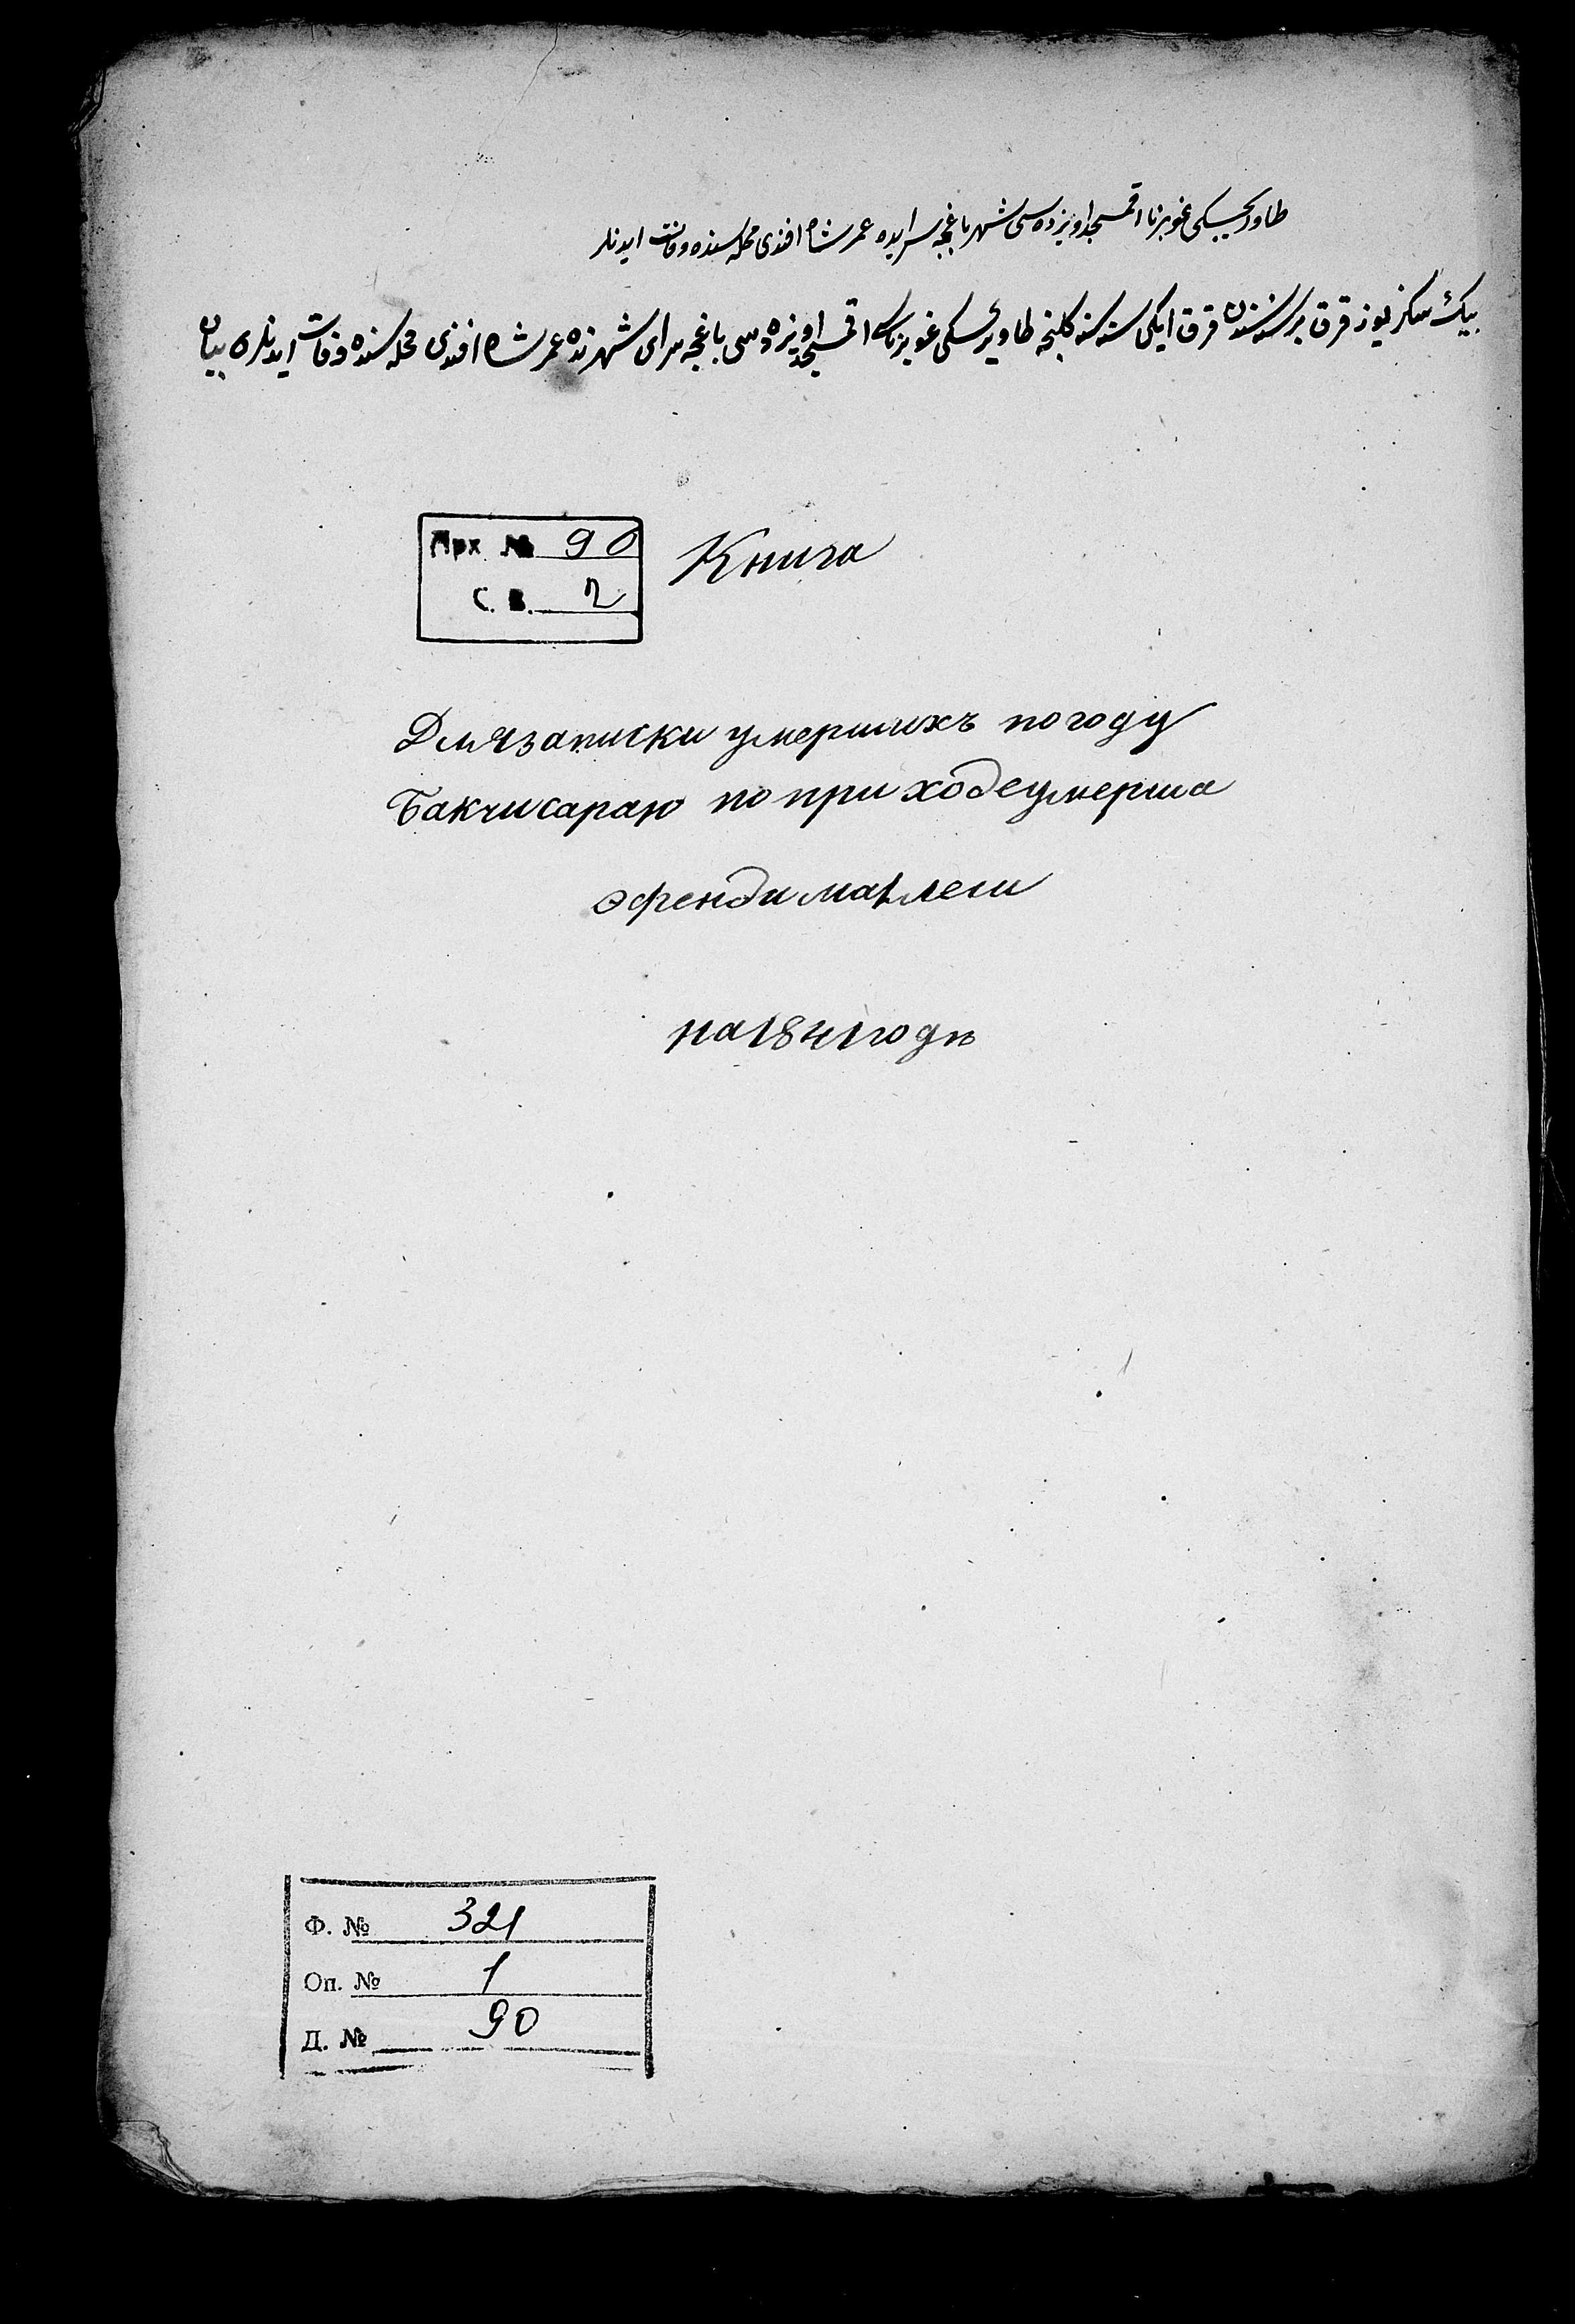 طاوريچسكى غوبرنا اقمسجد اويزدەسى شهر باغچه سرايده عمر شاه افندى محله سنده وفات ايدنلر
بيك سكز يوز قرق بر سنه سندن قرق ايكى سنه سنه كلنجه طاوريچسكى غوبرناسى اقمسجد اويزدەسى باغچه سراى شهرنده عمر شاه افندى محله سنده وفات ايدنلرى بيان
Арх № 90
С. В. 2
Книга
Для записки умершихъ по году
Бакчисараю по приходе умерша
эфенди маhлеси
на 1841 годъ
Ф. № 321
Оп. № 1
Д. № 90